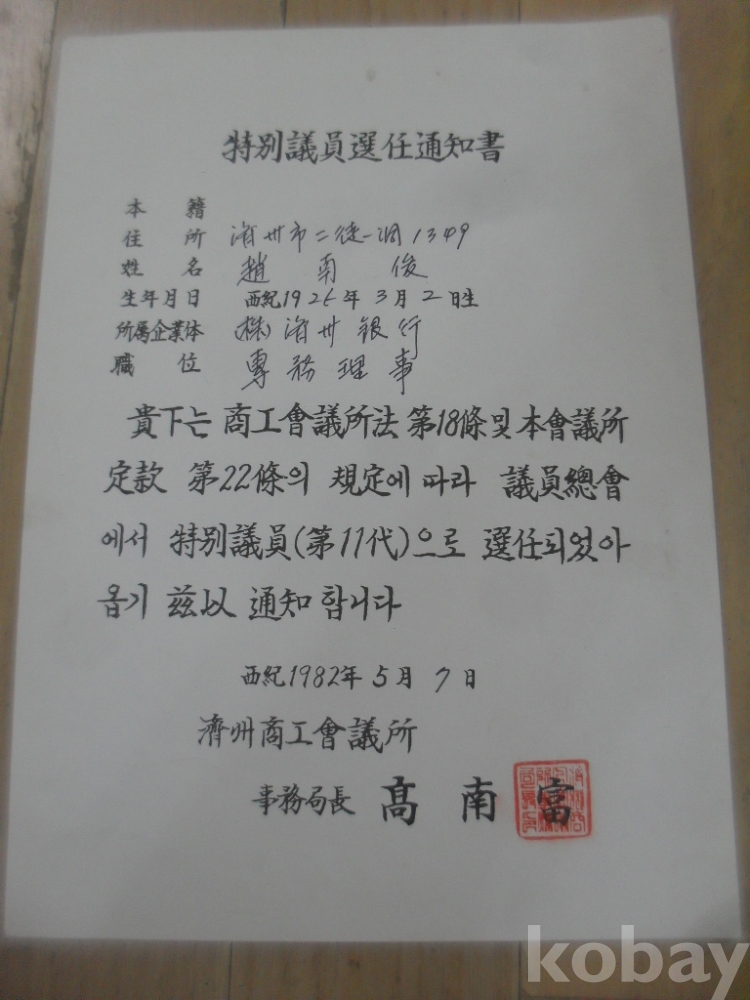 特別議員選任通知書
本籍
住所 濟州市二徒一洞1349
姓名 趙南俊
生年月日 西紀1926年3月2日生
所屬企業体 (株)濟州銀行
職位 專務理事
貴下는 商工會議所法 第18條 및 本會議所
定款 第22條의 規定에 따라 議員總會
에서 特別議員(第11代)으로 選任되었아
옵기 玆以 通知합니다
西紀1982年 5月 7日
濟州商工會議所
事務局長 高南富
kobay